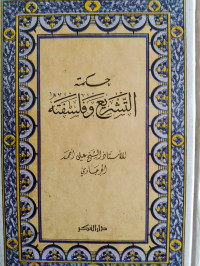 حكمة
التشريع وفلسفته
للأستاذ الشيخ علي أحمد
الجرجاوي
دار الفكر